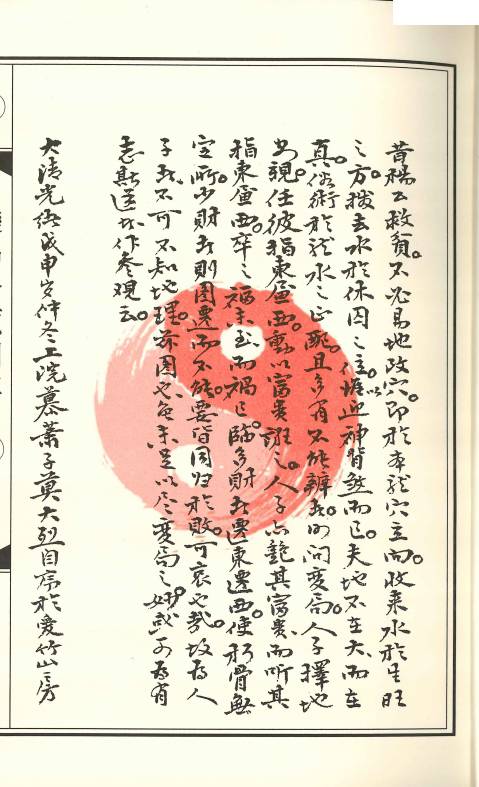 昔楊公救貧。不必易地改穴。即於本龍穴立向。收來水於生旺
之方。撥去水於休囚之位。以迎神背煞而已。夫地不在大。而在
真。俗術於龍水之正配。且多有不能辨。問變局。人子擇地
親。任彼指東西。動以富貴誑之。人子亦艷其富貴而聽其
指東西。卒之福未至而禍已臨。多財者遷東遷西。使朽骨無
定所。少財者則困而不能。要皆同归於敗。可哀也哉。故為人
子者不可不知地理。茲图也未足以尽變局之妙。或可為有
志斯道者作參观云。
大清光緒戊申岁仲冬上浣慕蕭子莫大烈自序於愛竹山房